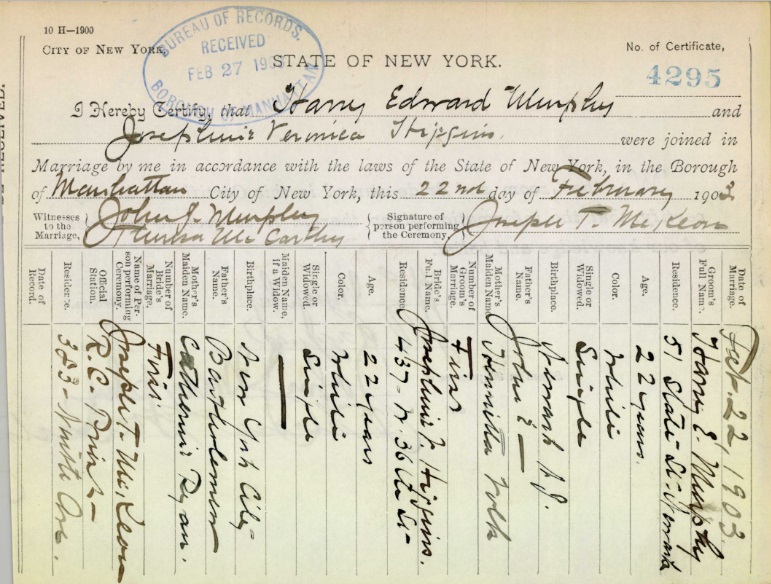 10 H—1900
CITY OF NEW YORK.
BUREAU OF RECORDS.
RECEIVED
FEB 27 190
BOROUGH OF MANHATTAN
STATE OF NEW YORK.
No. of Certificate,
4295
I Hereby Certify, that Harry Edward Murphy and
Josephine Veronica Higgins. were joined in
Marriage by me in accordance with the laws of the State of New York, in the Borough
of Manhattan City of New York, this 22nd day of February 1903
Witnesses to the Marriage, John J. Murphy
McCarthy
Signature of person performing the Ceremony, Joseph T. McKeon
Date of Marriage. Feb. 22, 1903
Groom's Full Name. Harry E. Murphy
Residence. 51 State St. Newark
Age. 22 years.
Color. White
Single or Widowed. Single
Birthplace. Newark N.J.
Father's Name. John E —
Mother's Maiden Name. Henrietta
Number of Groom's Marriage. First
Bride's Full Name. Josephine V. Higgins.
Residence. 437 - W. 36th St -
Age. 22 years
Color. White
Single or Widowed. Single
Maiden Name, if a Widow. —
Birthplace. New York City -
Father's Name. Bartholomew
Mother's Maiden Name. Catherine Ryan.
Number of Bride's Marriage. First
Name of Person performing Ceremony. Joseph T. McKeon
Official Station. R.C. Priest -
Residence. 383 - Ninth Ave.
Date of Record.
RECEIVED.